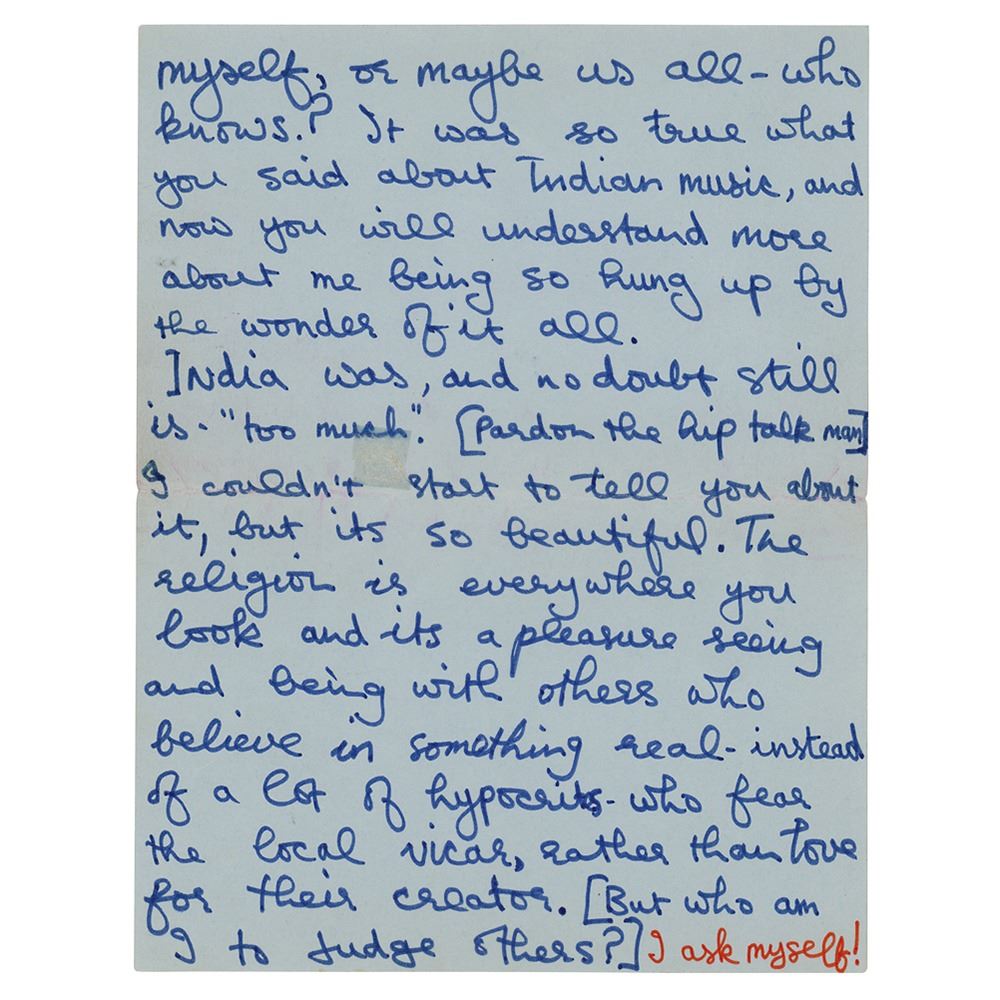 myself, or maybe us all - who
knows.? It was so true what
you said about Indian music, and
now you will understand more
about me being so hung up by
the wonder of it all.
]India was, and no doubt still
is - "too much". [Pardon the hip talk man]
I couldn't start to tell you about
it, but its so beautiful. The
religion is everywhere you
look and its a pleasure seeing
and being with others who
believe in something real - instead
of a lot of hypocrits - who fear
the local vicar, rather than love
for their creator. [But who am
I to judge others?] I ask myself!